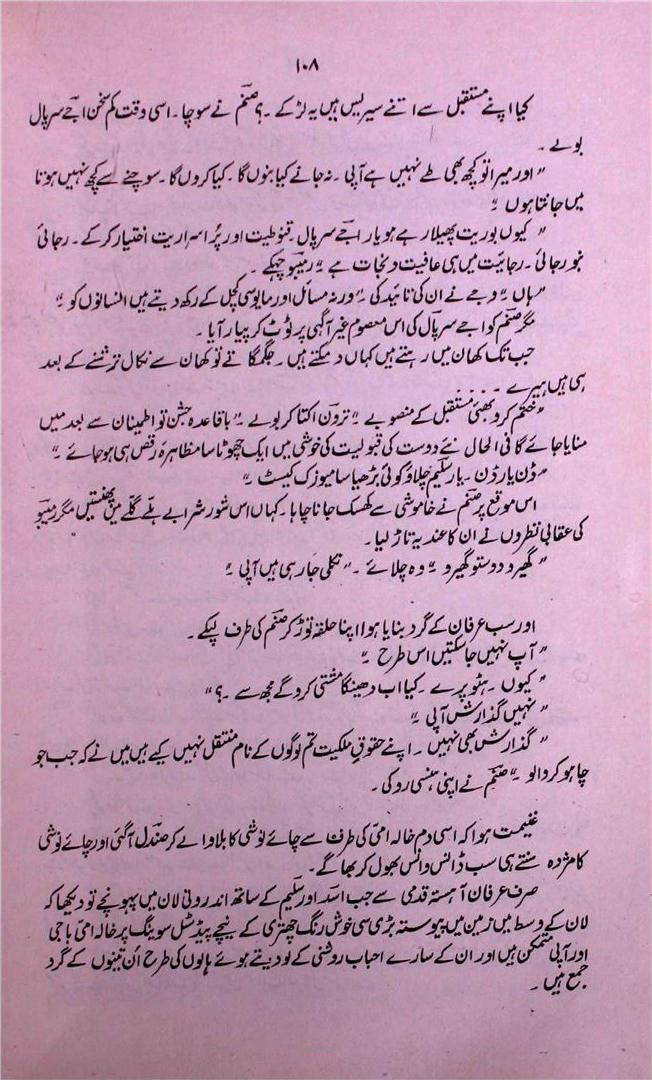 ۱۰۸
کیا اپنے مستقبل سے اتنے سیریس ہیں یہ لڑکے ۔ ؟ صنم نے سوچا ۔ اسی وقت کم سخن اجے سرپال
بولے ۔
" اور میرا تو کچھ بھی طے نہیں ہے آپی ۔ نہ جانے کیا بنوں گا ۔ کیا کروں گا ۔ سوچنے سے کچھ نہیں ہونا
میں جانتا ہوں "
" کیوں بوریت پھیلا رہے ہو یار اجے سرپال ۔ قنوطیت اور پُر اسراریت اختیار کرکے ۔ رجائی
بنو رجائی ۔ رجائیت میں ہی عافیت و نجات ہے " رمیبو چہکے ۔
" ہاں " وجے نے ان کی تائید کی " ورنہ مسائل اور مایوسی کچل کے رکھ دیتے ہیں انسانوں کو "
مگر صنم کو اجے سرپال کی اس معصوم غیر آگہی پر ٹوٹ کر پیار آیا ۔
جب تک کھان میں رہتے ہیں کہاں دمکتے ہیں ۔ جگمگاتے تو کھان سے نکال ترشنے کے بعد
ہی ہیں ہیرے ۔ ۔ ۔ ۔
" ختم کرو بھئی مستقبل کے منصوبے " ترون اکتا کر بولے " باقاعدہ جشن تو اطمینان سے بعد میں
منایا جائے گا فی الحال نئے دوست کی قبولیت کی خوشی میں ایک چھوٹا سا مظاہرۂ رقص ہی ہو جائے "
" ڈن یار ڈن ۔ یار سلیم چلاؤ کوئی بڑھیا سا میوزک کیسٹ "
اس موقع پر صنم نے خاموشی سے کھسک جانا چاہا ۔ کہاں اس شور شرابے ہلے گلے میں پھنستیں مگر رمیبو
کی عقابی نظروں نے ان کا عندیہ تاڑ لیا ۔
" گھیرو دوستو گھیرو " وہ چلائے ۔ " نکلی جا رہی ہیں آپی "
اور سب عرفان کے گرد بنایا ہوا اپنا حلقہ توڑ کر صنم کی طرف لپکے ۔
" آپ نہیں جا سکتیں اس طرح "
" کیوں ۔ ہٹو پرے ۔ کیا اب دھینگا مشتی کرو گے مجھ سے ۔ ؟ "
" نہیں گذارش آپی "
" گذارش بھی نہیں ۔ اپنے حقوقِ ملکیت تم لوگوں کے نام منتقل نہیں کیے ہیں میں نے کہ جب جو
چاہو کر والو " صنم نے اپنی ہنسی روکی ۔
غنیمت ہوا کہ اسی دم خالہ امی کی طرف سے چائے نوشی کا بلاوا لے کر صندل آگئی اور چائے نوشی
کا مژدہ سنتے ہی سب ڈانس وانس بھول کر بھاگے ۔
صرف عرفان آہستہ قدمی سے جب اسد اور سلیم کے ساتھ اندرونی لان میں پہونچے تو دیکھا کہ
لان کے وسط میں زمین میں پیوستہ بڑی سی خوش رنگ چھتری کے نیچے پیڈسٹل سوینگ پر خالہ امی باجی
اور آپی متمکن ہیں اور ان کے سارے احباب روشنی کے لو دیتے ہوئے ہالوں کی طرح اُن تینوں کے گرد
جمع ہیں ۔